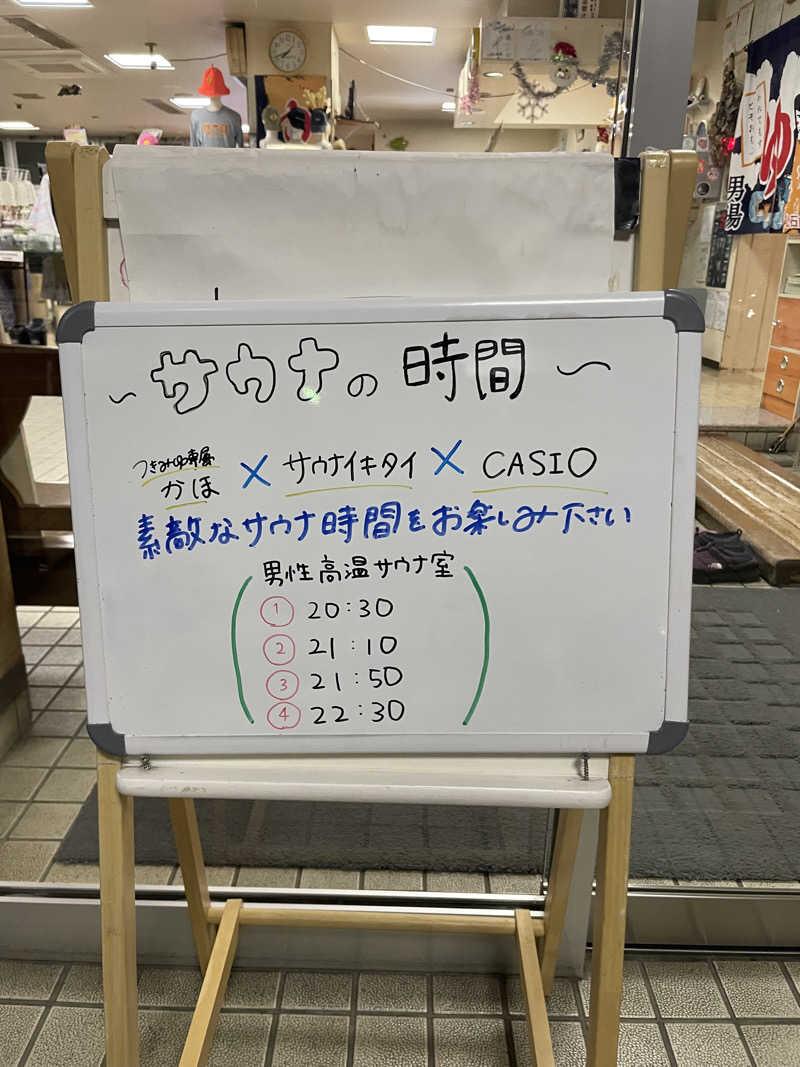 ~サウナの 時間~
かほ × サウナイキタイ × CASIO
素敵なサウナ時間をお楽しみ下さい
男性高温サウナ室
① 20:30
② 21:10
③ 21:50
④ 22:30
ゆ
男湯